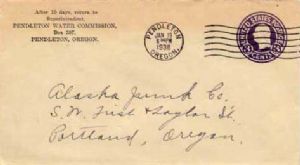 After 10 days, return to
Superintendent.
PENDLETON WATER COMMISSION,
Box 587,
PENDLETON, OREGON.
PENDLETON
JAN
PM
1938
OREGON.
UNITED STATES
CENTS
Alaska Junk Co.
S.W. First & Taylor St.
Portland, Oregon.